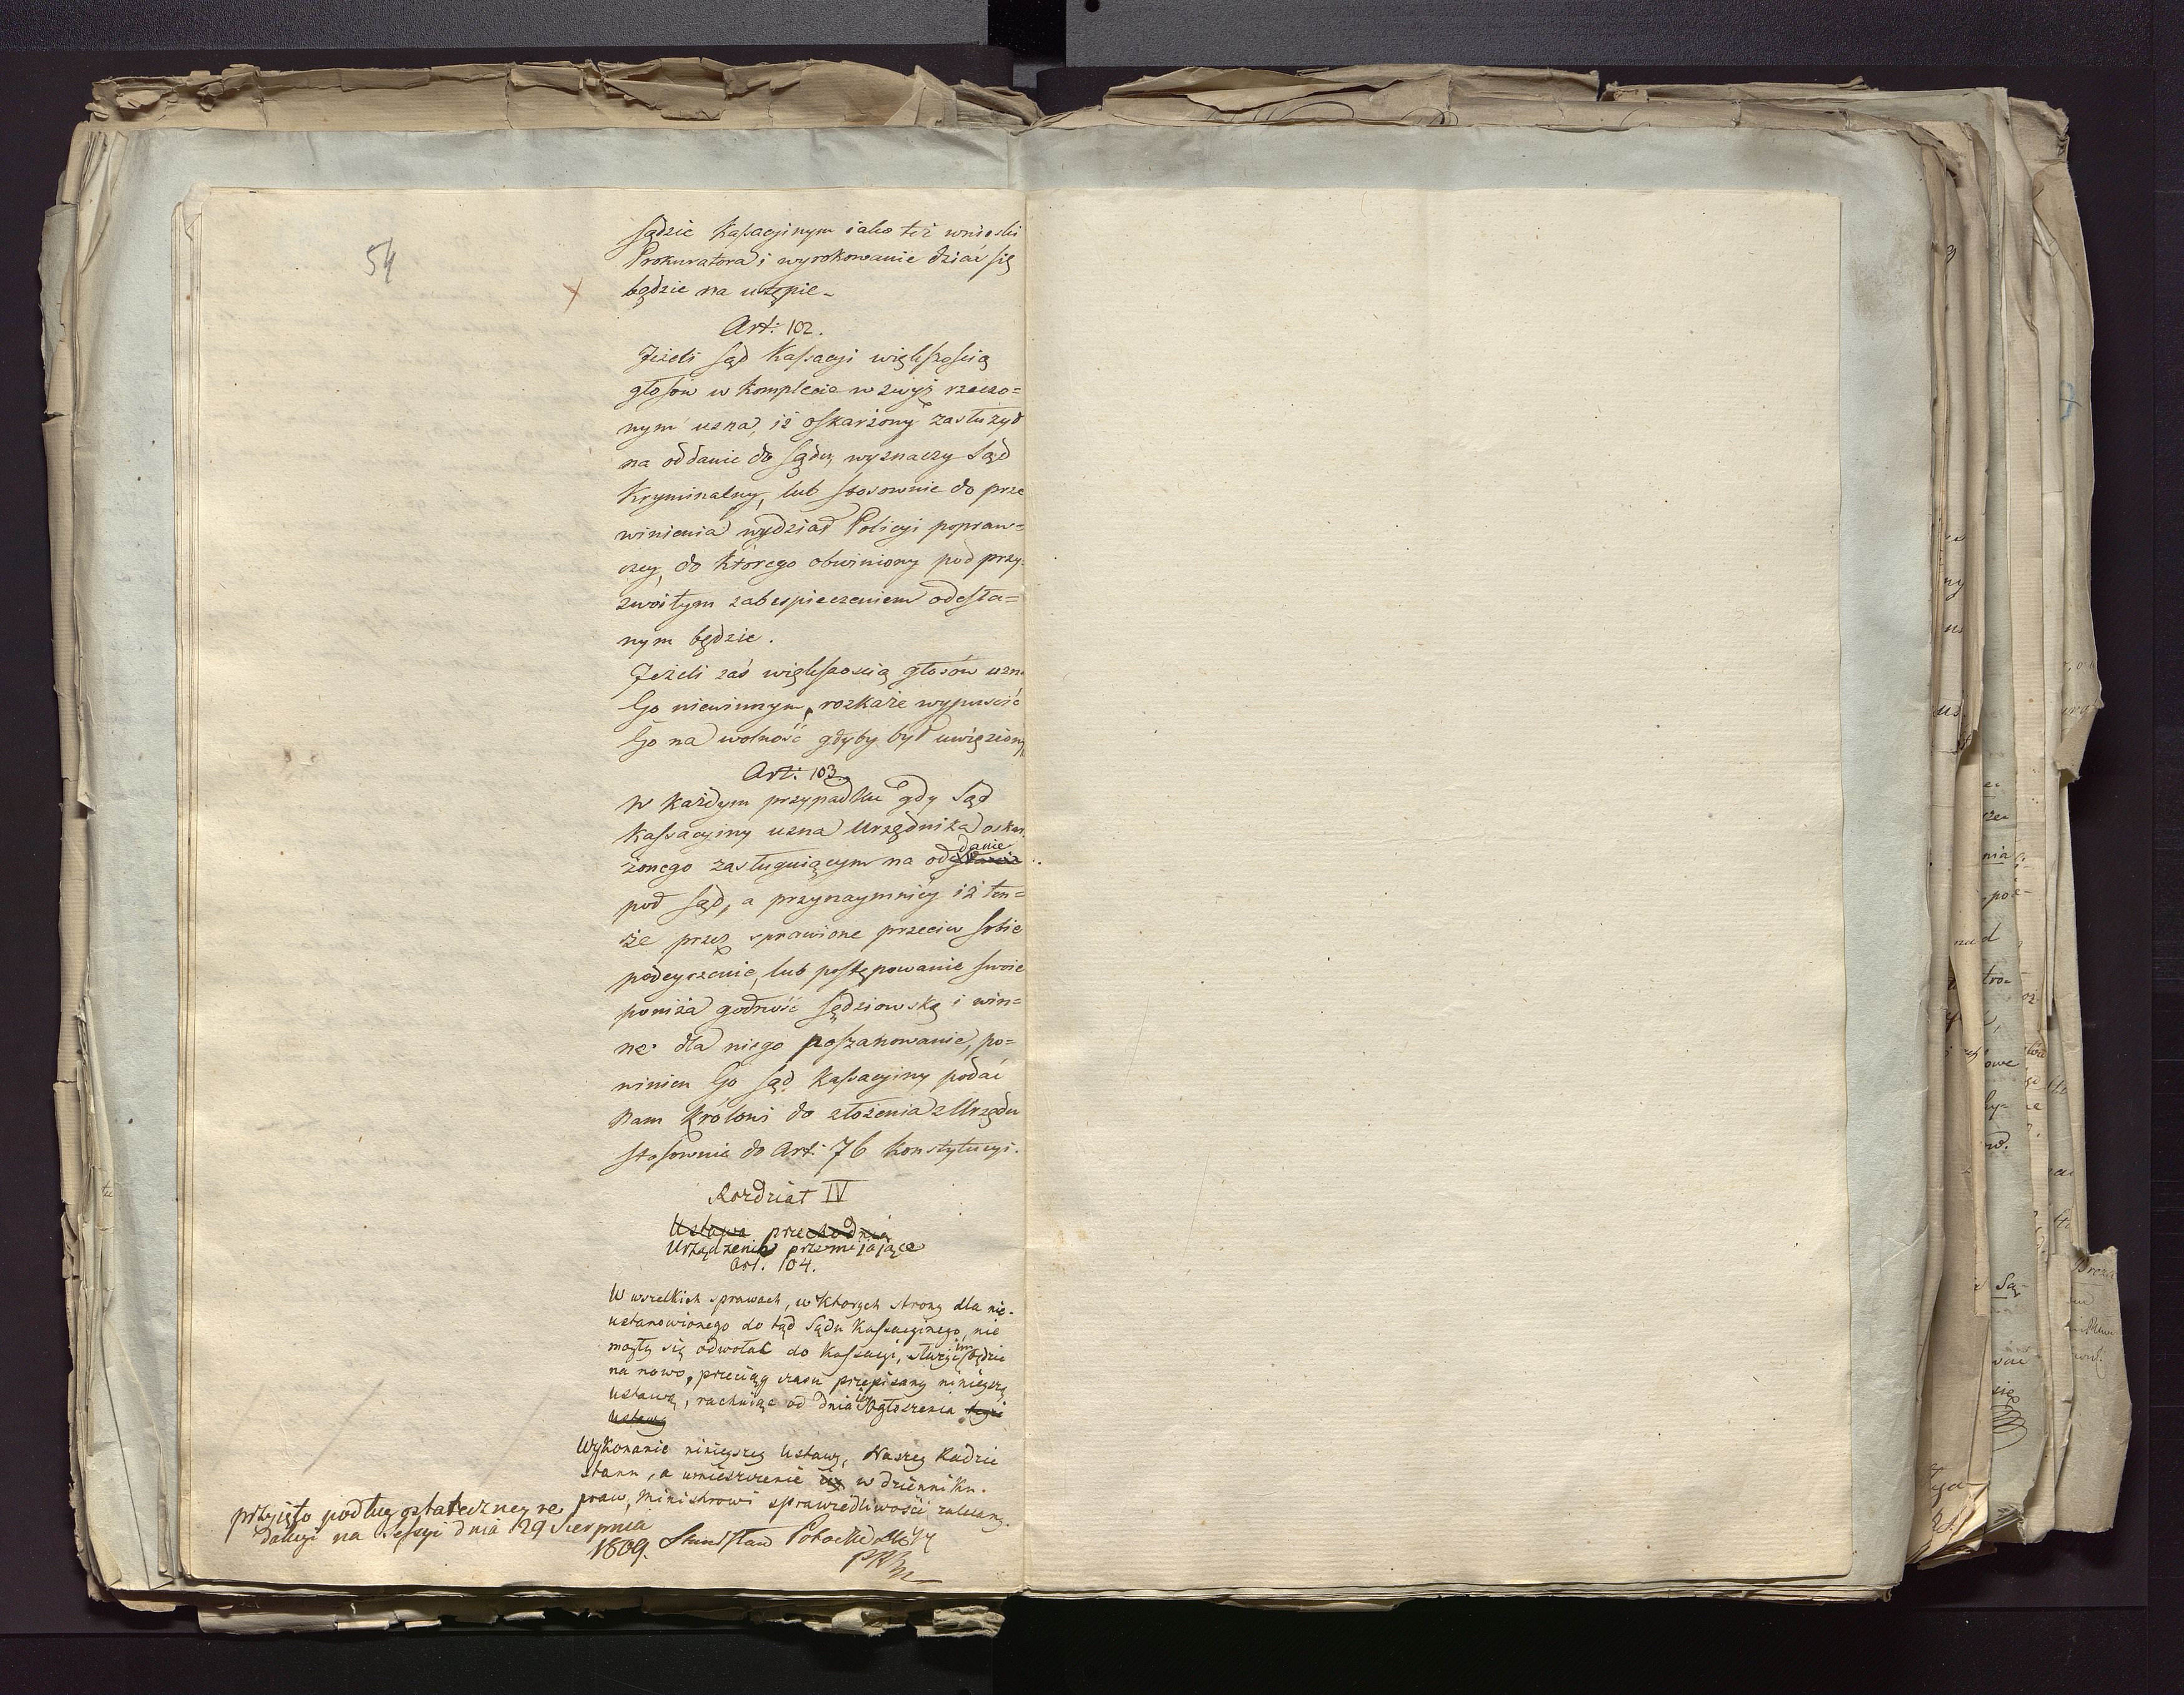 54
sądzie Kassacyinym iako też wnioski
Prokuratora i wyrokowanie dziać się
będzie na ustępie -
Art: 102.
Jeżeli sąd Kassacyi większością
głosów w komplecie wzwyż rzeczo=
nym uzna, iż oskarżony zasłużył
na oddanie do sądu, wyznaczy Sąd
Kryminalny, lub stosownie do prze
winienia wydział Policyi popraw=
czey, do którego obwiniony pod przy-
zwoitym zabespieczeniem odesła=
nym będzie.
Jeżeli zaś większością głosów uzna
Go niewinnym, rozkaże wypuścić
Go na wolność gdyby był uwięziony
Art: 103.
W każdym przypadku gdy Sąd
Kassacyiny uzna Urzędnika oskar
żonego zasługuiącym na oddanie
pod sąd, a przynaymniey iż ten=
że przez sprawione przeciw sobie
podeyrzenie, lub postępowanie swoie
poniża godność sędziowską i win=
ne dla niego poszanowanie, po=
winien Go sąd Kassacyiny podać
Nam Królowi do złożenia z Urzędu
stosownie do Art: 76 Konstytucyi.
Rozdział IV
Ustawa przechodnia
Urządzenia przemijające
Art. 104.
W wszelkich sprawach, w których strony dla nie-
ustanowionego do tąd Sądu Kassacyinego, nie
mogły się odwołać do Kassacyi, służyć im będzie
na nowo, przeciąg czasu przepisany ninieyszą
ustawą, rachuiąc od dnia iey ogłoszenia teyże
Ustawy
Wykonanie ninieyszey Ustawy, Naszey Radzie
stanu, a umieszczenie iey w dzienniku
praw, Ministrowi sprawiedliwości zalecamy.
przyięto podług ostateczney re
dakcyi na Sessyi dnia 29 Sierpnia
1809. Stanisław Potocki